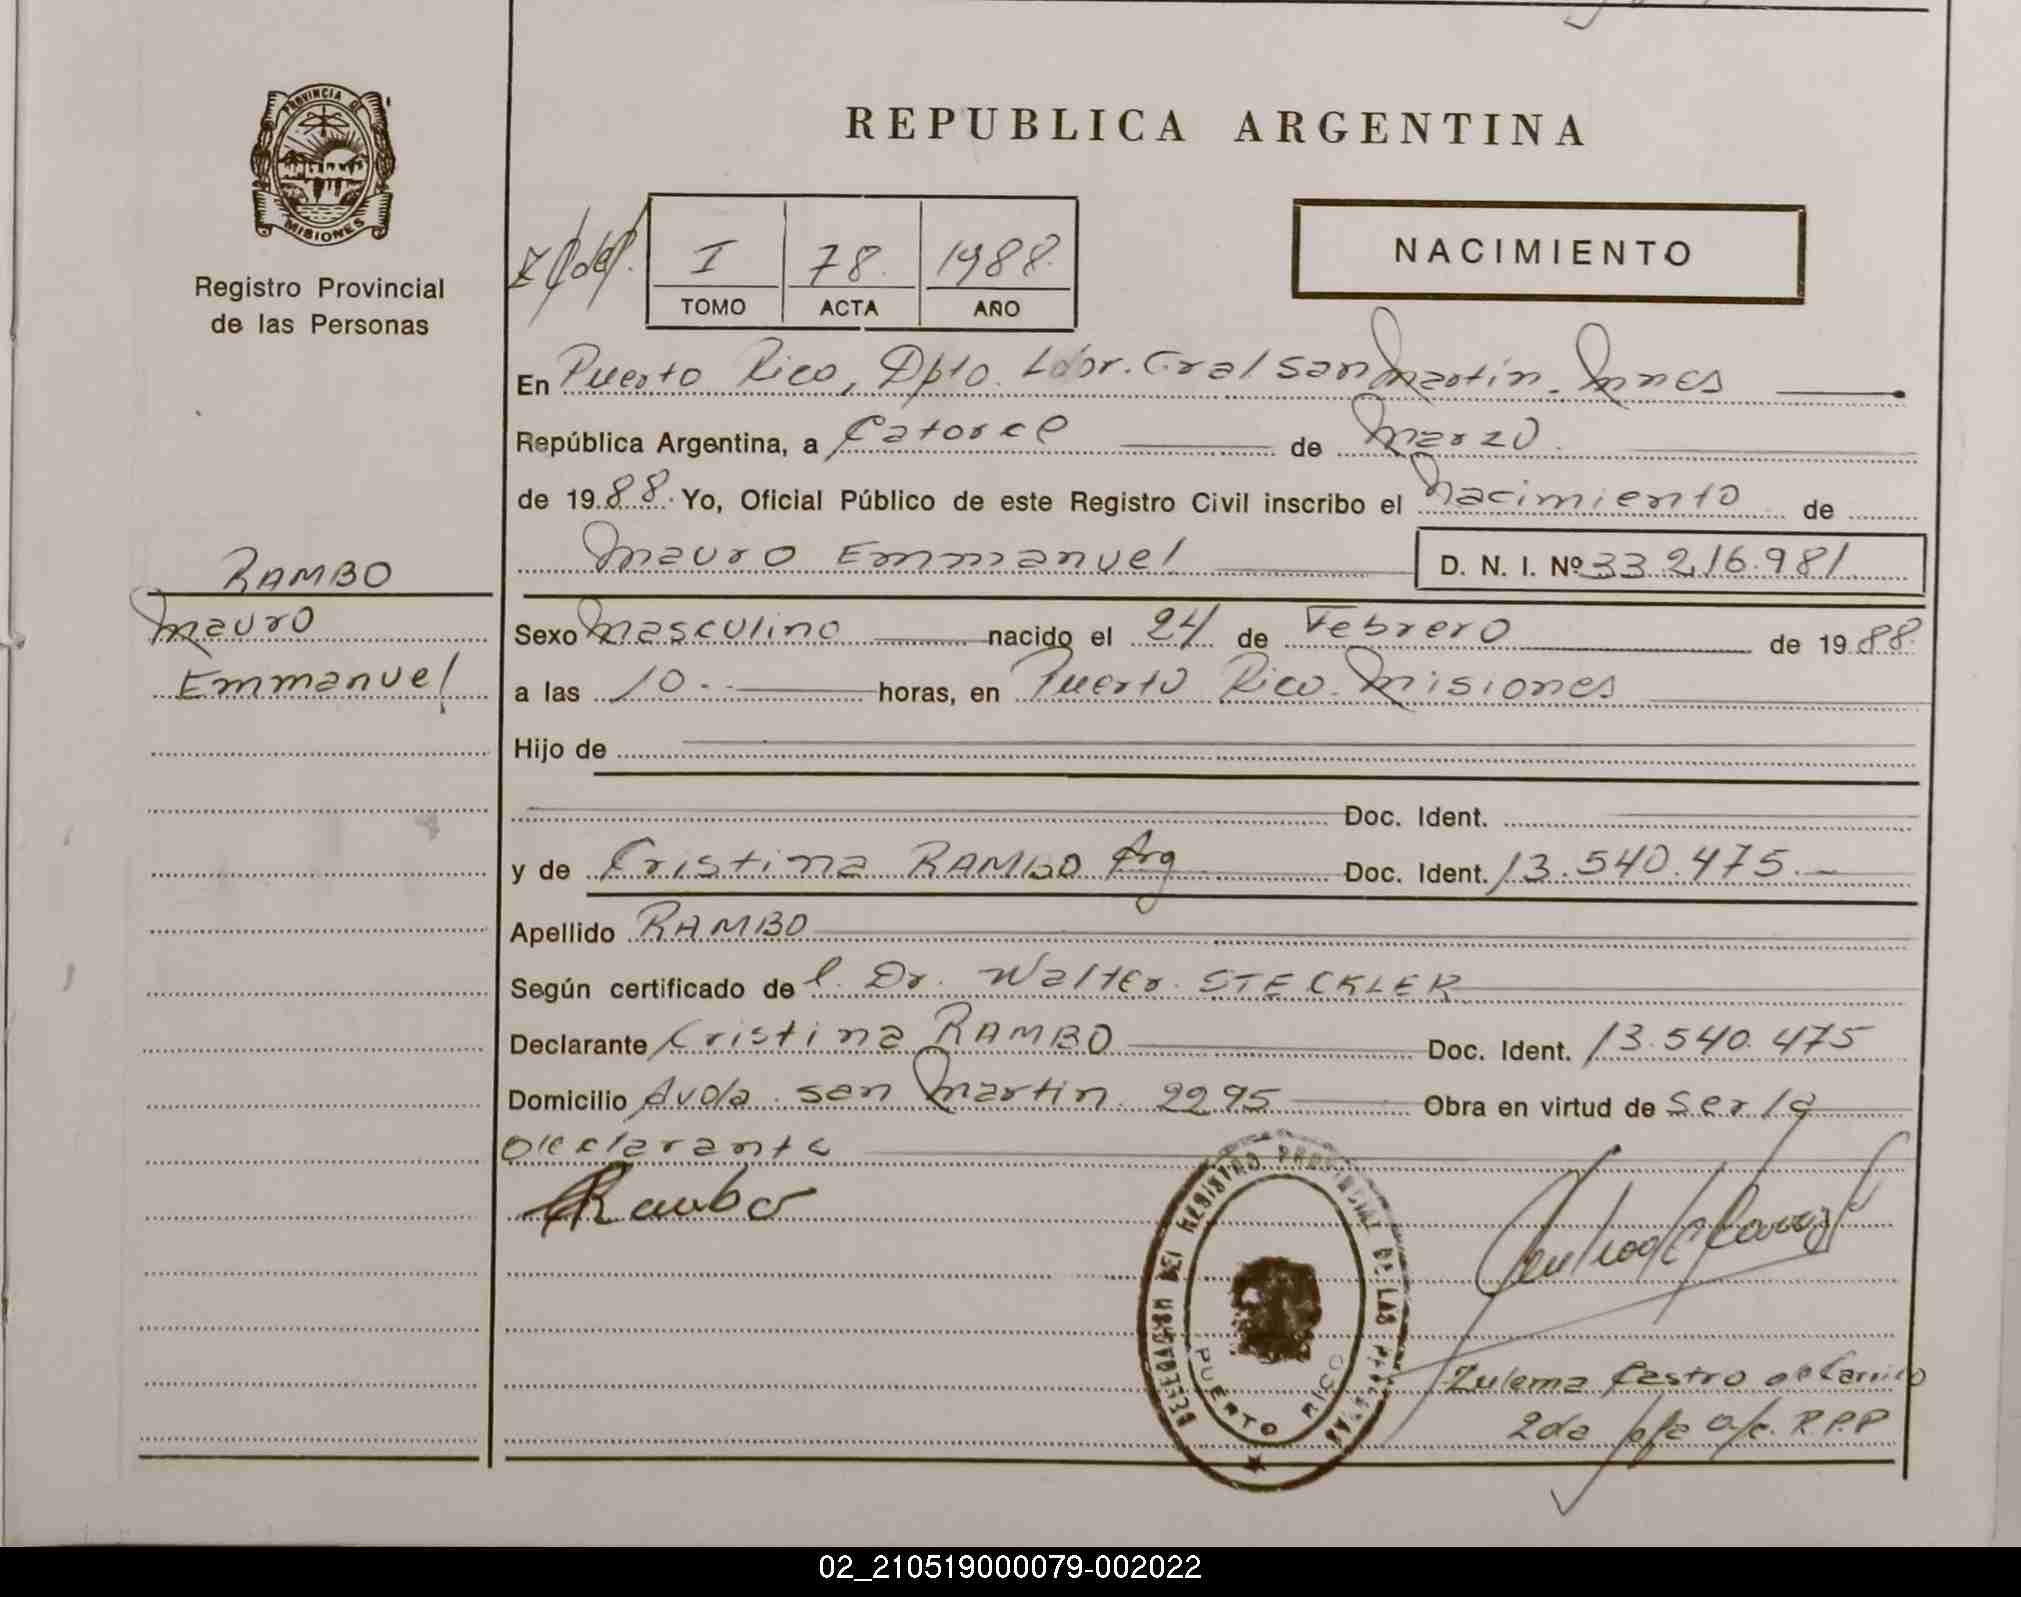 PROVINCIA DE
MISIONES
Registro Provincial
de las Personas
REPUBLICA ARGENTINA
I 78. 1988.
TOMO ACTA AÑO
NACIMIENTO
En Puerto Rico, Dpto. Ldor. Gral San Martín. Mnes
República Argentina, a Catorce de Marzo
de 1988. Yo, Oficial Público de este Registro Civil inscribo el Nacimiento de
Mauro Emmanuel D. N. I. Nº 33.216.981
RAMBO
Mauro
Emmanuel
Sexo Masculino nacido el 24 de Febrero de 1988.
a las 10. horas, en Puerto Rico. Misiones
Hijo de
Doc. Ident.
y de Cristina RAMBO Arg Doc. Ident. 13.540.475.
Apellido RAMBO
Según certificado del Dr. Walter STECKLER
Declarante Cristina RAMBO Doc. Ident. 13.540.475
Domicilio Avda. san Martin 2295 Obra en virtud de ser la
declarante
CRambo
DELEGACION DEL REGISTRO PROVINCIAL DE LAS PERSONAS
PUERTO RICO
Zulema Castro de Carrillo
2da Jefa a/c. R.P.P
02_210519000079-002022